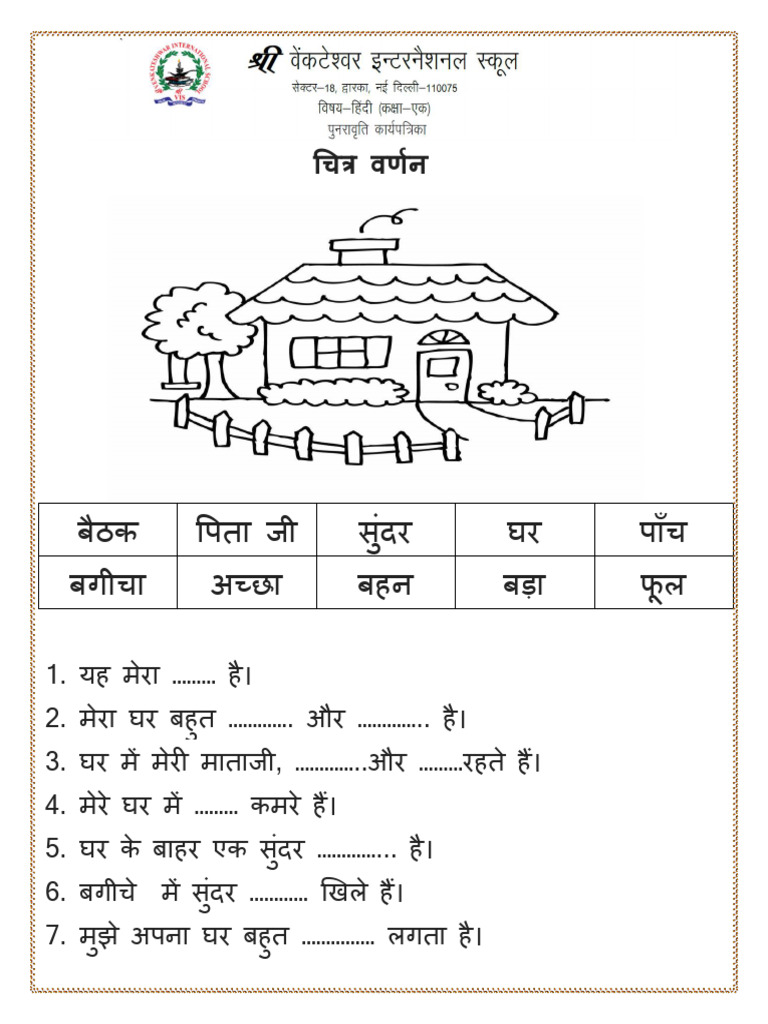 श्री वेंकटेश्वर इन्टरनैशनल स्कूल
सेक्टर–18, द्वारका, नई दिल्ली–110075
विषय–हिंदी (कक्षा–एक)
पुनरावृति कार्यपत्रिका
चित्र वर्णन
बैठक पिता जी सुंदर घर पाँच
बगीचा अच्छा बहन बड़ा फूल
1. यह मेरा ……… है।
2. मेरा घर बहुत …………. और ………….. है।
3. घर में मेरी माताजी, …………..और ………रहते हैं।
4. मेरे घर में ……… कमरे हैं।
5. घर के बाहर एक सुंदर ……………. है।
6. बगीचे में सुंदर ………… खिले हैं।
7. मुझे अपना घर बहुत …………… लगता है।